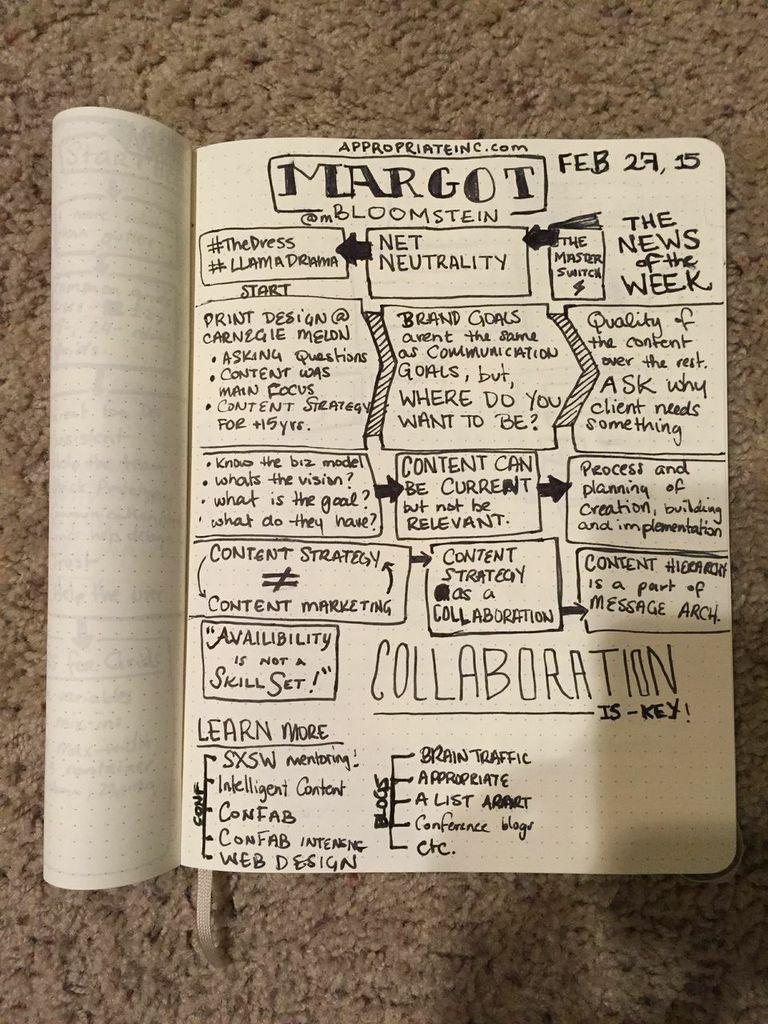 APPROPRIATEINC.com
MARGOT
FEB 27, 15
@mBLOOMSTEIN
#TheDress
#LLAMADRAMA
NET
NEUTRALITY
THE
MASTER
SWITCH
THE
NEWS
of the
WEEK
START
PRINT DESIGN @
CARNEGIE MELON
• ASKING Questions
• CONTENT WAS
MAIN FOCUS
• CONTENT STRATEGY
FOR +15yrs.
BRAND GOALS
arent the same
as COMMUNICIATION
GOALS, but,
WHERE DO YOU
WANT TO BE?
Quality of
the content
over the rest.
ASK why
client needs
something
• Know the biz model
• whats the vision?
• what is the goal?
• what do they have?
CONTENT CAN
BE CURRENT
but not be
RELEVANT.
Process and
planning of
creation, building
and implementation
CONTENT STRATEGY
≠
CONTENT MARKETING
CONTENT
STRATEGY
as a
COLLABORATION
CONTENT HIERARCHY
is a part of
MESSAGE ARCH.
"AVAILIBILITY
IS NOT A
SKILL SET!"
COLLABORATION
IS-KEY!
LEARN MORE
CONF
SXSW mentoring!
Intelligent Content
CONFAB
CONFAB INTENSIVE
WEB DESIGN
BLOGS
BRAIN TRAFFIC
APPROPRIATE
A LIST APART
Conference blogs
etc.